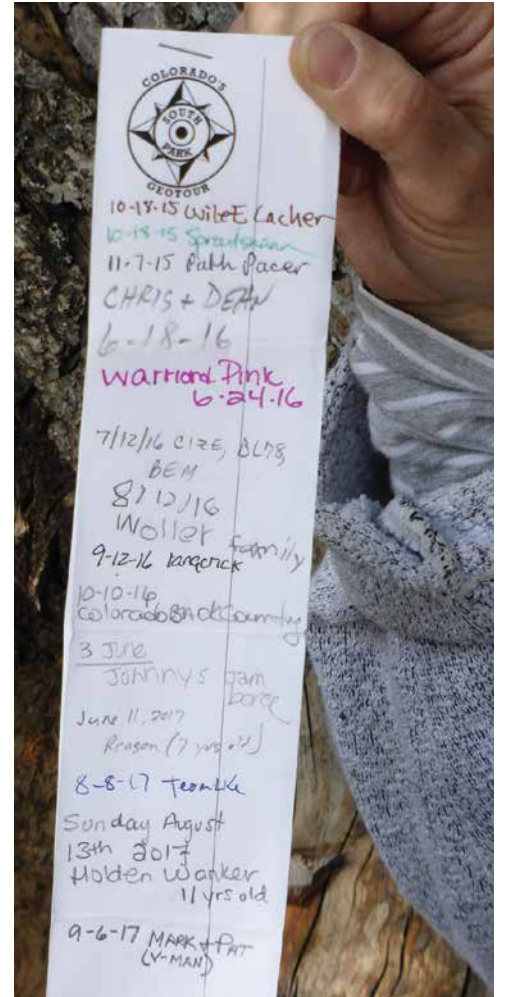 COLORADO'S
SOUTH
PARK
GEOTOUR
10-18-15 WileE Cacher
10-18-15
11-7-15 Path Pacer
CHRIS + DEAN
6-18-16
Warriora Pink
6-24-16
7/12/16 CIZE, BL78,
BEM
8/12/16
Woller Family
9-12-16
10-10-16
Colorado BackCountry
3 June
Johnnys jam
boree
June 11, 2017
Reagan (7 yrs old)
8-8-17
Sunday August
13th 2017
Holden Wanker
11 yrs old
9-6-17 MARK + PAT
(V-MAN)